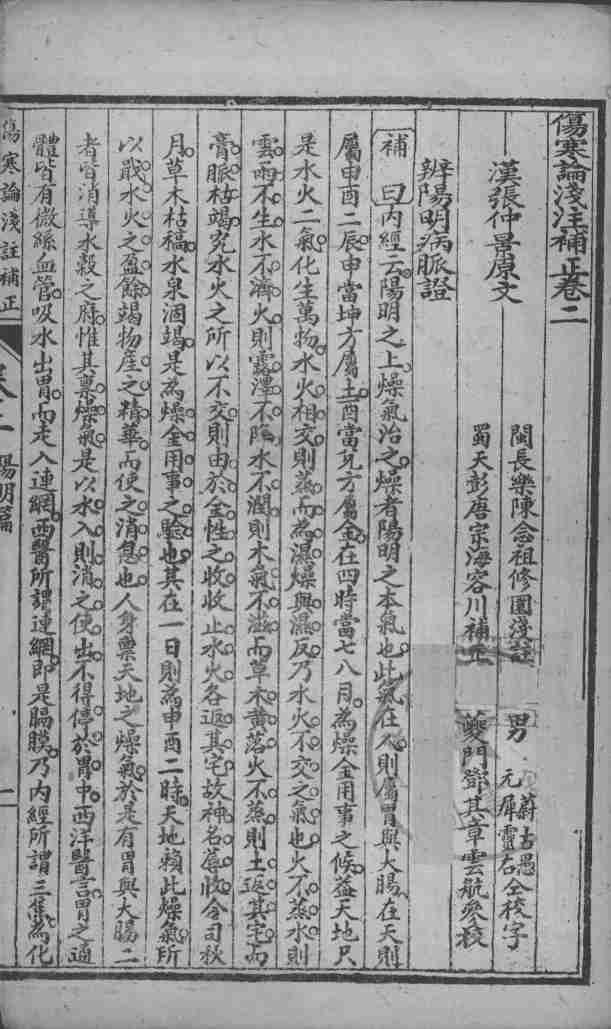 傷寒論淺注補正卷二
漢張仲景原文
閩長樂陳念祖修園淺註
蜀天彭唐宗海容川補正
男 蔚古愚
元犀靈石 仝校字
夔門鄧其章雲航參校
辨陽明病脈證
補曰內經云陽明之上燥氣治之燥者陽明之本氣也此氣在人則屬胃與大腸在天則
屬申酉二辰申當坤方屬土酉當兌方屬金在四時當七八月為燥金用事之候蓋天地只
是水火二氣化生萬物水火相交則蒸而為濕燥與濕反乃水火不交之氣也火不蒸水則
雲雨不生水不濟火則露澤不降水不潤則木氣不滋而草木黃落火不蒸則土返其宅而
膏脈枯竭究水火之所以不交則由於金性之收收止水火各返其宅故神名蓐收令司秋
月草木枯槁水泉涸竭是為燥金用事之驗也其在一日則為申酉二時天地賴此燥氣所
以戢水火之盈餘竭物產之精華而使之消息也人身稟天地之燥氣於是有胃與大腸二
者皆消導水穀之府惟其稟燥氣是以水入則消之使出不得停於胃中西洋醫言胃之通
體皆有微絲血管吸水出胃而走入連網西醫所謂連網即是膈膜乃內經所謂三焦為化
傷寒論淺註補正
卷二 陽明篇
一